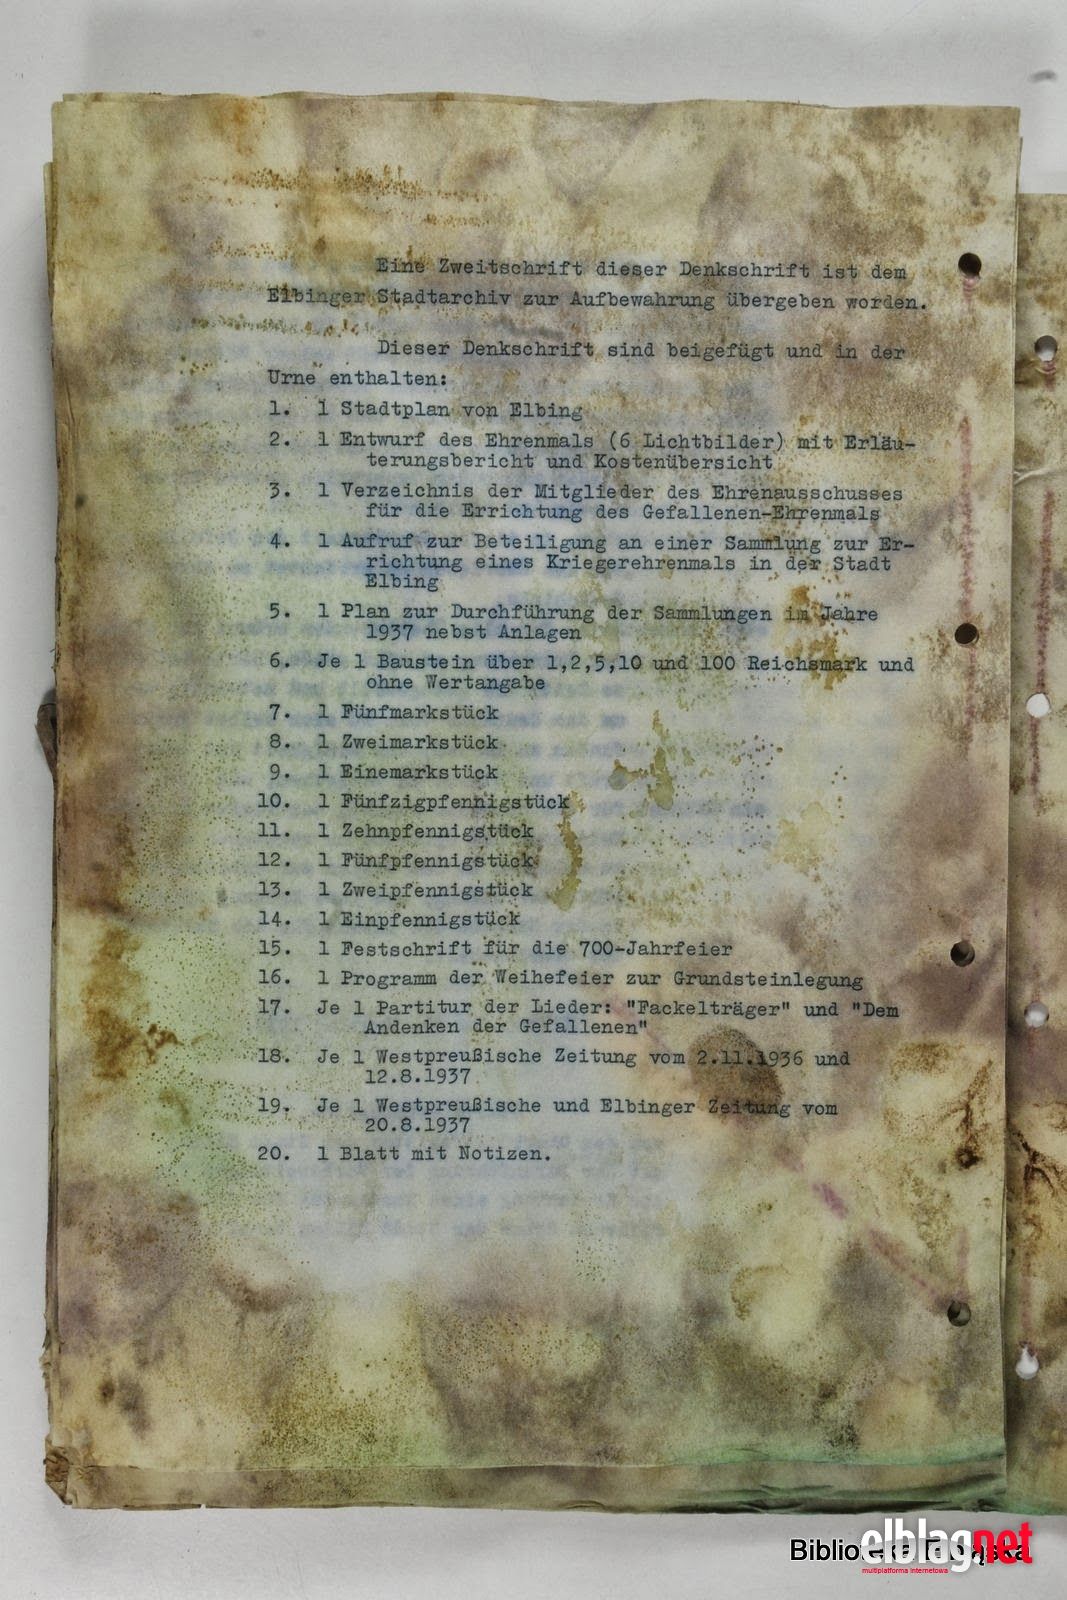 Eine Zweitschrift dieser Denkschrift ist dem
Elbinger Stadtarchiv zur Aufbewahrung übergeben worden.
Dieser Denkschrift sind beigefügt und in der
Urne enthalten:
1. 1 Stadtplan von Elbing
2. 1 Entwurf des Ehrenmals (6 Lichtbilder) mit Erläu-
terungsbericht und Kostenübersicht
3. 1 Verzeichnis der Mitglieder des Ehrenausschusses
für die Errichtung des Gefallenen-Ehrenmals
4. 1 Aufruf zur Beteiligung an einer Sammlung zur Er-
richtung eines Kriegerehrenmals in der Stadt
Elbing
5. 1 Plan zur Durchführung der Sammlungen im Jahre
1937 nebst Anlagen
6. Je 1 Baustein über 1,2,5,10 und 100 Reichsmark und
ohne Wertangabe
7. 1 Fünfmarkstück
8. 1 Zweimarkstück
9. 1 Einemarkstück
10. 1 Fünfzigpfennigstück
11. 1 Zehnpfennigstück
12. 1 Fünfpfennigstück
13. 1 Zweipfennigstück
14. 1 Einpfennigstück
15. 1 Festschrift für die 700-Jahrfeier
16. 1 Programm der Weihefeier zur Grundsteinlegung
17. Je 1 Partitur der Lieder: "Fackelträger" und "Dem
Andenken der Gefallenen"
18. Je 1 Westpreußische Zeitung vom 2.11.1936 und
12.8.1937
19. Je 1 Westpreußische und Elbinger Zeitung vom
20.8.1937
20. 1 Blatt mit Notizen.
elblagnet
multiplatforma internetowa